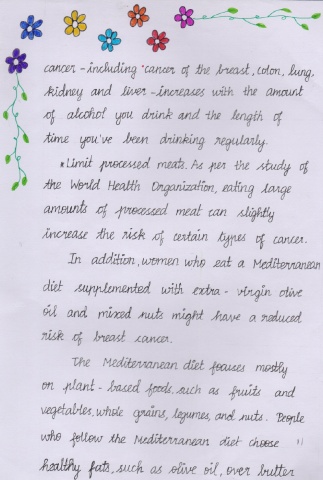 cancer - including cancer of the breast, colon, lung,
kidney and liver - increases with the amount
of alcohol you drink and the length of
time you've been drinking regularly.
* Limit processed meats. As per the study of
the World Health Organization, eating large
amounts of processed meat can slightly
increase the risk of certain types of cancer.
In addition, women who eat a Mediterranean
diet supplemented with extra - virgin olive
oil and mixed nuts might have a reduced
risk of breast cancer.
The Mediterranean diet focuses mostly
on plant - based foods, such as fruits and
vegetables, whole grains, legumes, and nuts. People
who follow the Mediterranean diet choose
healthy fats, such as olive oil, over butter